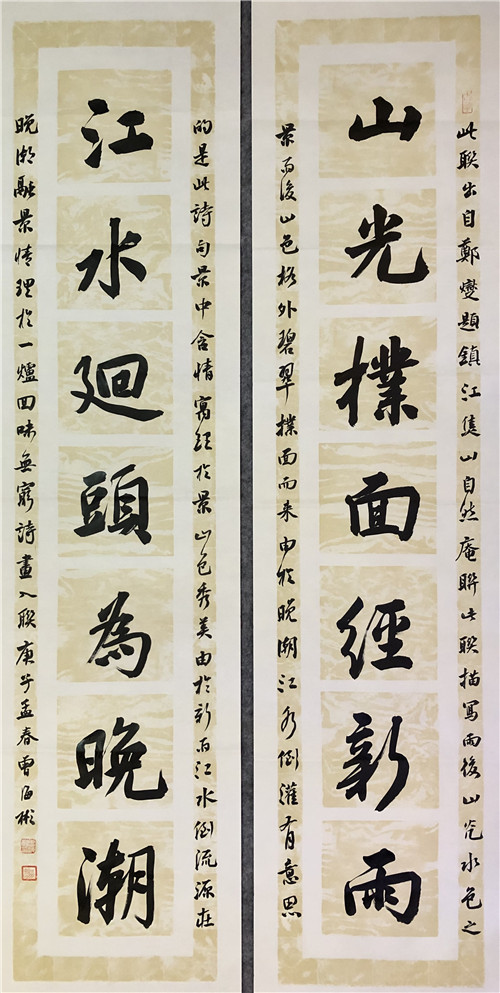 山光撲面經新雨
江水廻頭為晚潮
此聯出自鄭燮題鎮江焦山自然庵聯此聯描寫雨後山光水色之
景雨後山色格外碧翠撲面而来由於晚潮江水倒灌有意思
的是此詩句景中含情寓理於景山色秀美由於新雨江水倒流源在
晚潮融景情理於一爐回味無窮詩畫入聯庚子孟春曾海彬